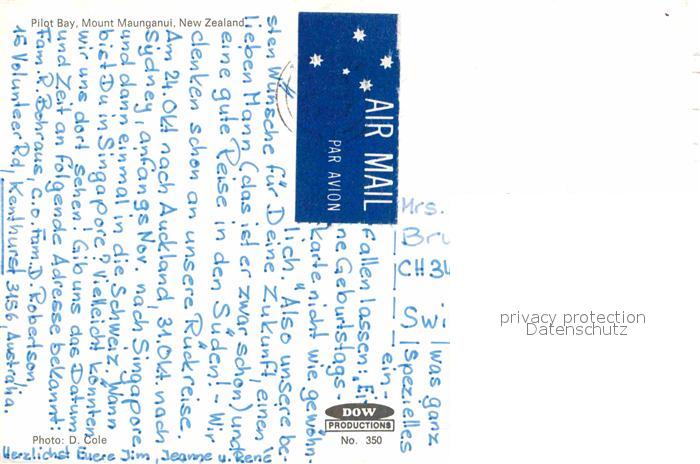 Pilot Bay, Mount Maunganui, New Zealand
AIR MAIL
PAR AVION
Mrs.
Bru
CH 34
SW-
was ganz
spezielles
ein-
fallen lassen: „Ei
ne Geburtstags
karte nicht wie gewöhn-
lich." Also unsere be-
sten Wünsche für Deine Zukunft, einen
lieben Mann (das ist er zwar schon) und
eine gute Reise in den Süden! - Wir
denken schon an unsere Rückreise.
Am 24. Okt nach Auckland, 31. Okt. nach
Sydney, anfangs Nov. nach Singapore
und dann einmal in die Schweiz. Wann
bist Du in Singapore? Vielleicht könnten
wir uns dort sehen! Gib uns das Datum
und Zeit an folgende Adresse bekannt:
Fam. R. Bohraus, c.o. Fam. D. Robertson
15 Volunteer Rd, Kenthurst 3156, Australia.
Herzlichst Euere Jim, Jeanne u. René
Photo: D. Cole
DOW
PRODUCTIONS
No. 350
privacy protection
Datenschutz